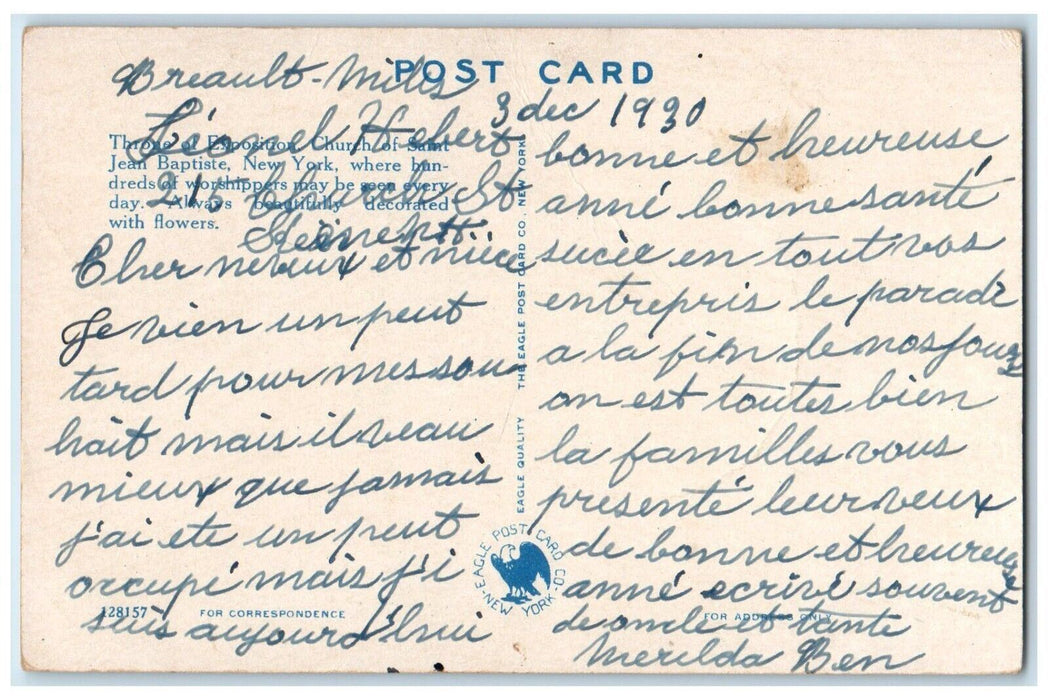 POST CARD
Breault-Mills
3 dec 1930
Lionel Hebert
Throne of Exposition, Church of Saint
Jean Baptiste, New York, where hun-
dreds of worshippers may be seen every
day. Always beautifully decorated
with flowers.
215 St
Cher neveux et nièce
Je vien un peut
tard pour mes sou
hait mais il veau
mieux que jamais
j'ai ete un peut
occupé mais j'i
suis aujourd'hui
bonne et heureuse
anné bonne santé
sucèe en tout vos
entrepris le paradi
a la fin de nos jours
on est toutes bien
la familles vous
presenté leur veux
de bonne et heureuse
anné ecrivé souvent
de oncle et tante
Merilda Ben
EAGLE QUALITY THE EAGLE POST CARD CO., NEW YORK
EAGLE POST CARD CO.
NEW YORK
128157
FOR CORRESPONDENCE
FOR ADDRESS ONLY